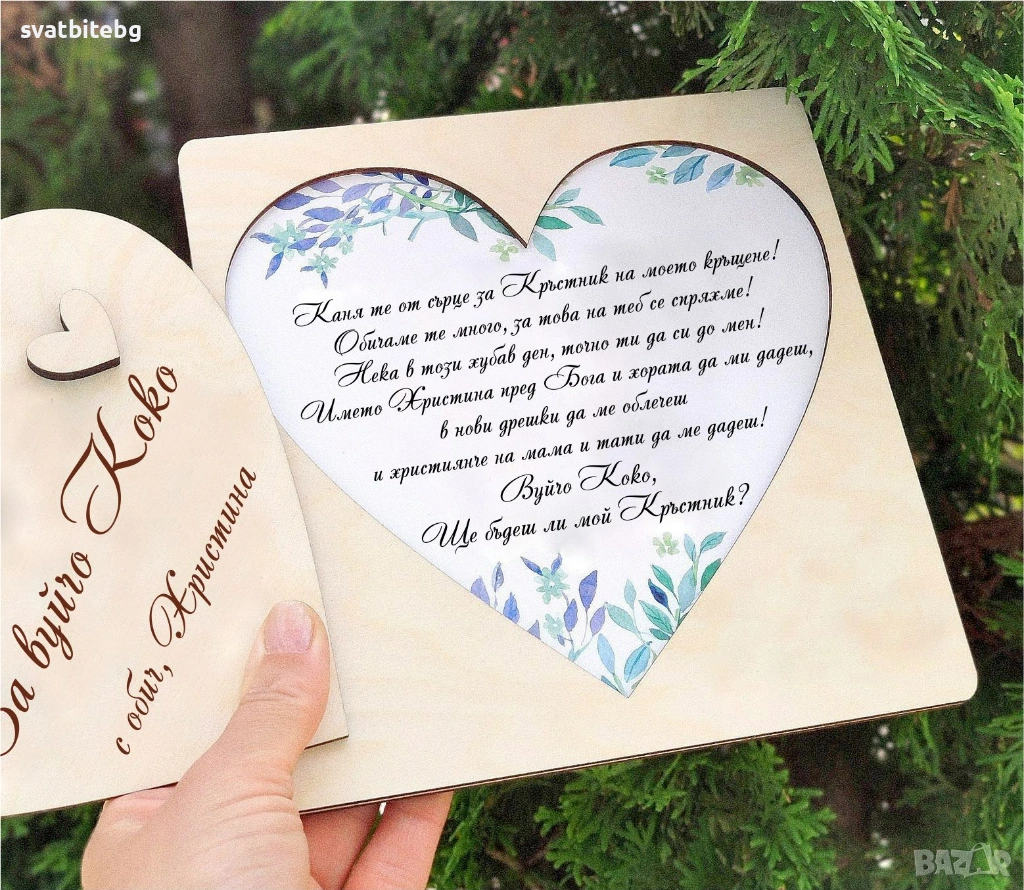 svatbitebg
Каня те от сърце за Кръстник на моето кръщене!
Обичаме те много, за това на теб се спряхме!
Нека в този хубав ден, точно ти да си до мен!
Името Християна пред Бога и хората да ми дадеш,
в нови дрешки да ме облечеш
и християнче на мама и тати да ме дадеш!
Вуйчо Коко,
Ще бъдеш ли мой Кръстник?
За вуйчо Коко
с обич, Християна
BAZAR